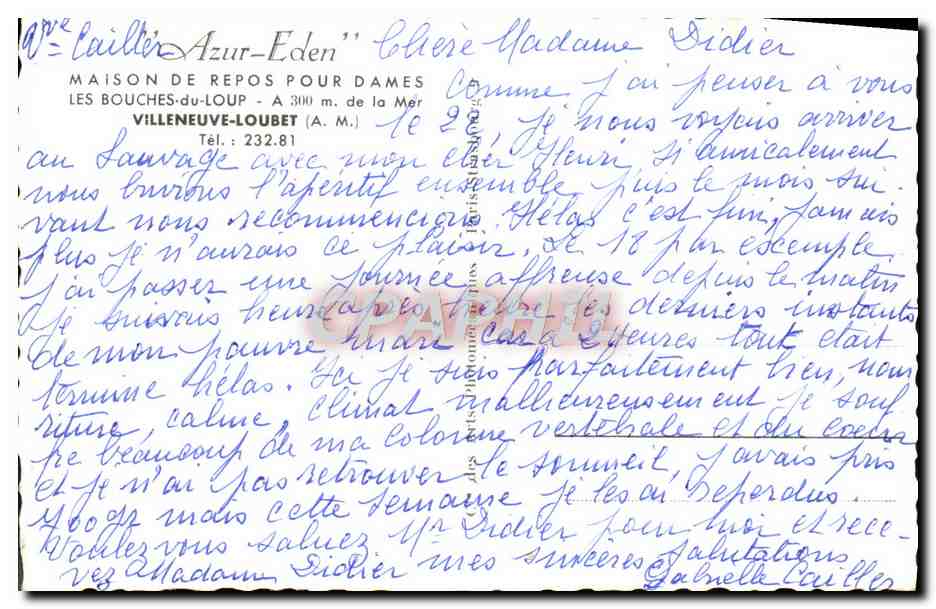 Vve Cailler
"Azur-Eden"
MAISON DE REPOS POUR DAMES
LES BOUCHES-du-LOUP - A 300 m. de la Mer
VILLENEUVE-LOUBET (A. M.)
Tél. : 232.81
Chère Madame Didier
Comme j'ai penser à vous
le 20, je nous voyais arriver
au Sauvage avec mon cher Henri, si amicalement
nous buvions l'apéritif ensemble, puis le mois sui-
vant nous recommencions. Hélas c'est fini, jamais
plus je n'aurais ce plaisir. Le 18 par exemple
j'ai passer une journée affreuse depuis le matin
je suivais heure après heure les derniers instants
de mon pauvre mari car à 2 Heures tout était
terminé hélas. Ici je suis parfaitement bien, nour-
riture, calme, climat malheureusement je souf-
fre beaucoup de ma colonne vertébrale et du coeur
et je n'ai pas retrouver le sommeil, j'avais pris
700gr mais cette semaine je les ai reperdus.
Voulez vous saluez Mr Didier pour moi et rece-
vez Madame Didier mes sincères salutations
Gabrielle Cailler
Paris-Strasbourg
CPARHU